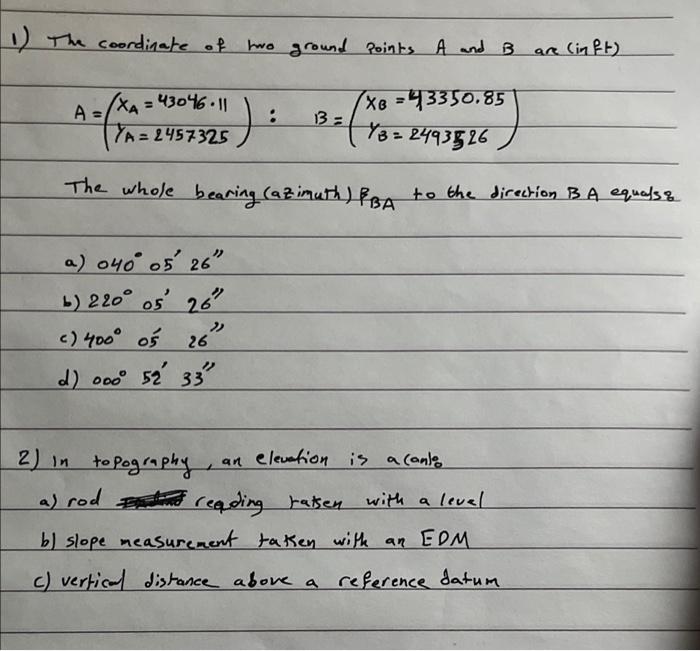 1) The coordinate of two ground Points A and B are (in ft)
A = (XA = 43046.11 YA = 2457325) : B = (XB = 43350.85 YB = 2493526)
The whole bearing (azimuth) βBA to the direction BA equals:
a) 040° 05' 26"
b) 220° 05' 26"
c) 400° 05' 26"
d) 000° 52' 33"
2) In topography, an elevation is a(an):
a) rod reading taken with a level
b) slope measurement taken with an EDM
c) vertical distance above a reference datum